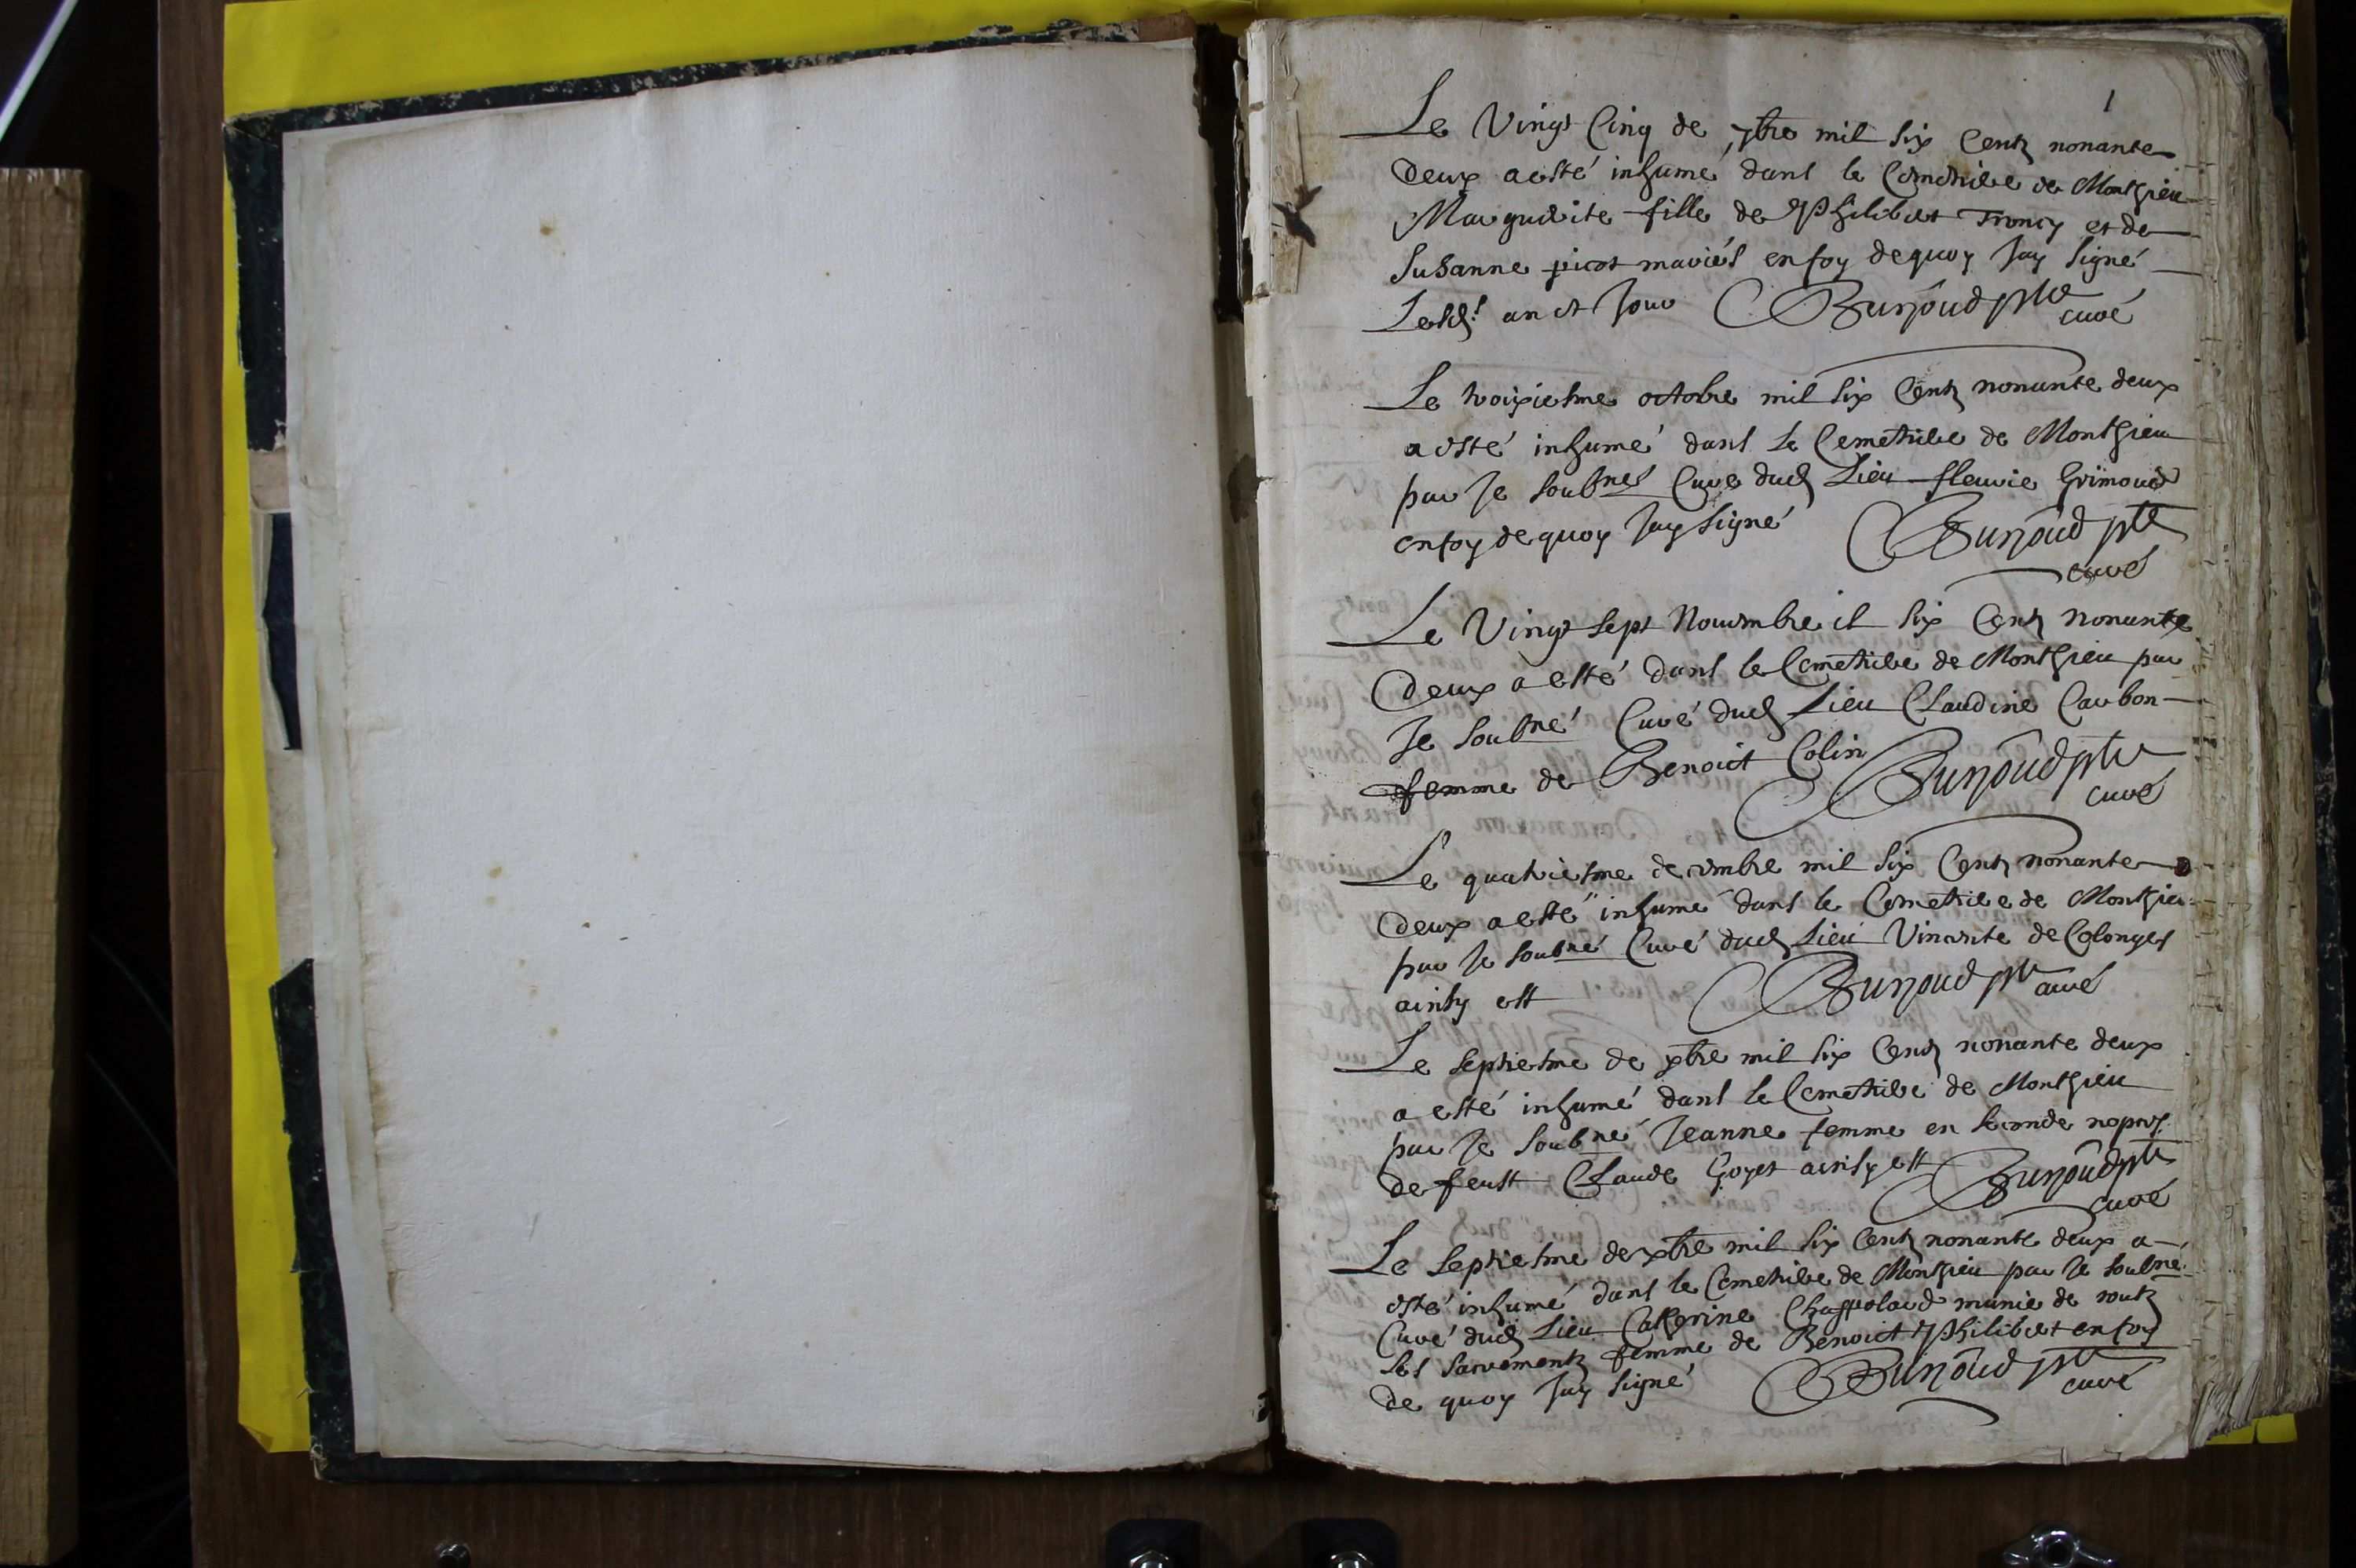 1
Le Vingt Cinq de 7bre mil six Centz nonante
deux a esté inhumé dans le Cemetiere de Monthieu
Marguerite fille de Philibert Troncy et de
Susanne picot mariés en foy de quoy Jay signé
Lesd. an et Jour Burjoud ptre curé
Le troisiesme octobre mil six Centz nonante deux
a esté inhumé dans le Cemetiere de Monthieu
par Je soubnes Curé dud Lieu fleurie Grimoud
en foy de quoy Jay signé Burjoud ptre
curé
Le Vingt sept Nouembre il six Centz nonante
deux a esté dans le Cemetiere de Monthieu par
Je soubné Curé dud Lieu Claudine Carbon
femme de Benoict Colin Burjoud ptre
curé
Le quatriesme decembre mil six Centz nonante
deux a esté inhumé dans le Cemetiere de Monthieu
par Je soubné Curé dud Lieu Vincente de Colonges
ainsy est Burjoud ptre curé
Le septiesme de xbre mil six Centz nonante deux
a esté inhumé dans le Cemetiere de Monthieu
par Je soubné Jeanne femme en seconde nopces
de feust Claude Goyet ainsy est Burjoud ptre
curé
Le septiesme de xbre mil six Centz nonante deux a
esté inhumé dans le Cemetiere de Monthieu par Je soubné
Curé dud Lieu Caterine munie de toutz
les sacrementz femme de Benoict Philibert en foy
de quoy Jay signé Burjoud ptre
curé